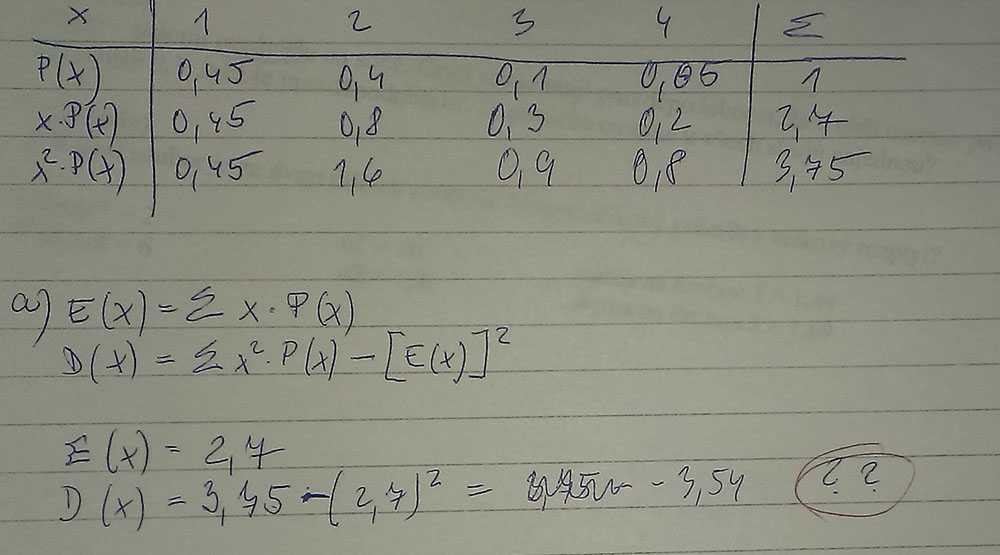 x 1 2 3 4 Σ
P(x) 0,45 0,4 0,1 0,05 1
x·P(x) 0,45 0,8 0,3 0,2 2,7
x²·P(x) 0,45 1,6 0,9 0,8 3,75
a) E(x) = Σ x·P(x)
D(x) = Σ x²·P(x) – [E(x)]²
E(x) = 2,7
D(x) = 3,75 – (2,7)² = - 3,54 ??